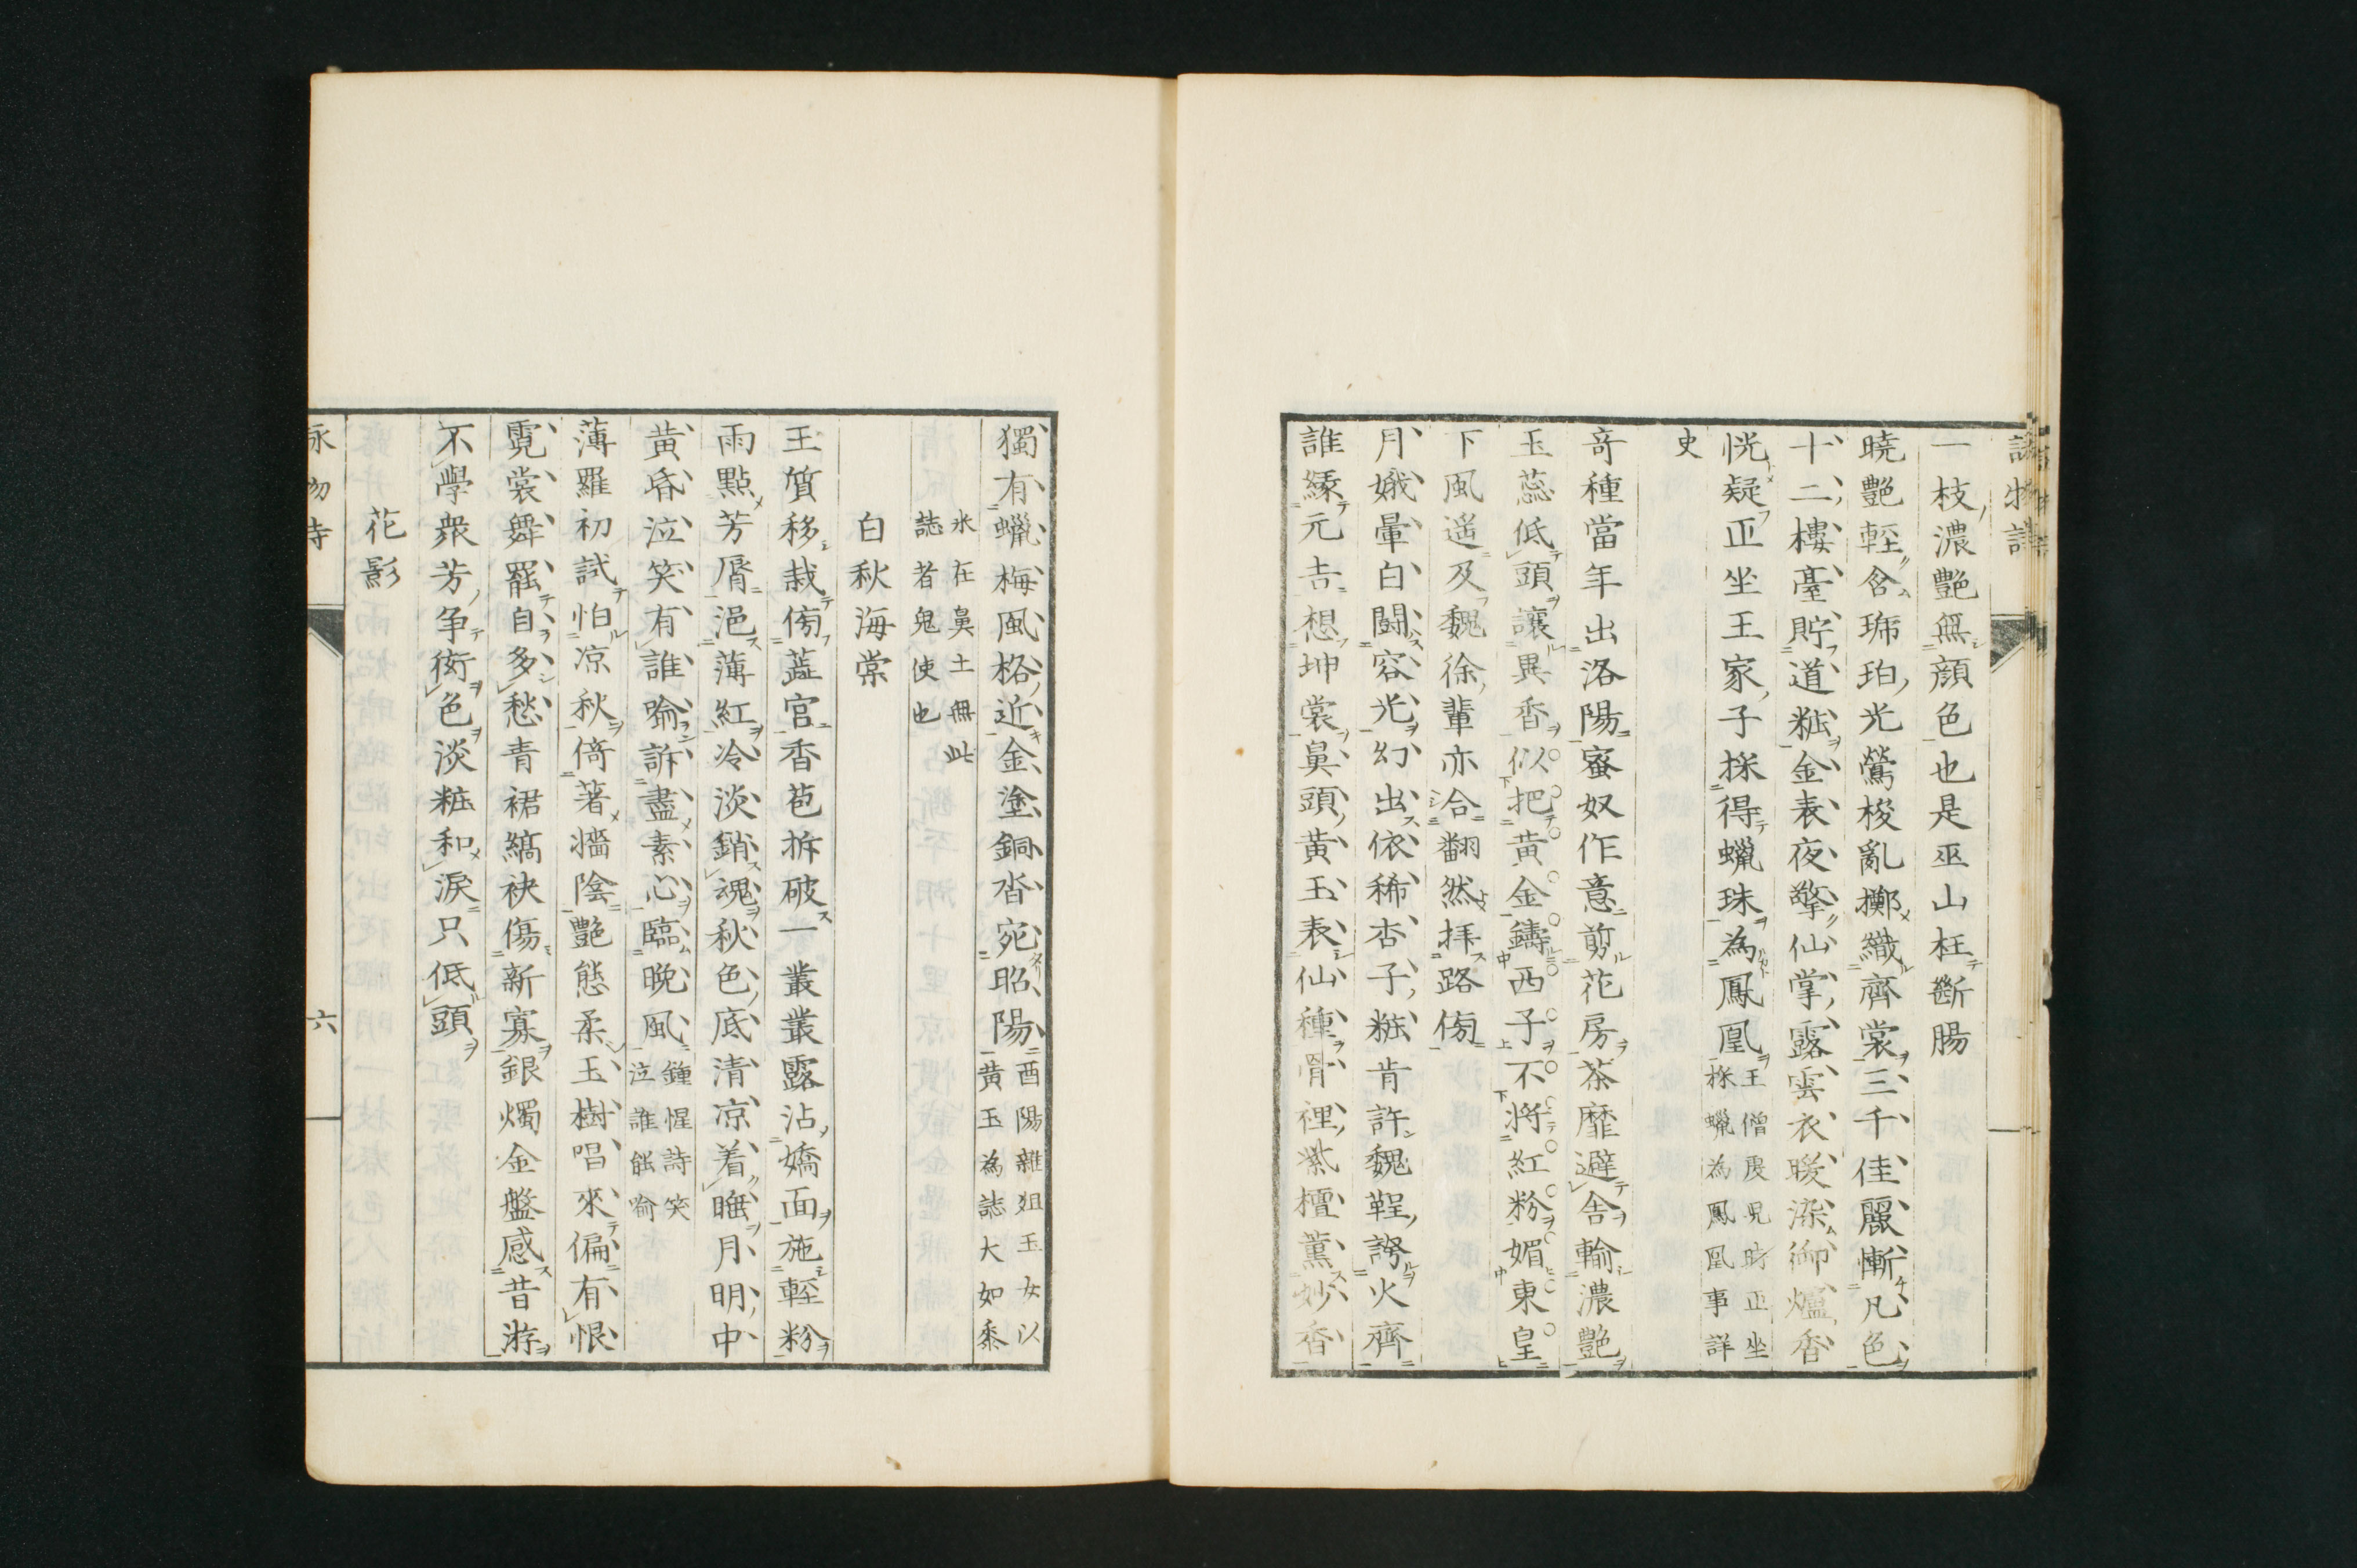 詠物詩
一枝濃艷無顔色也是巫山枉斷腸
曉艷輕含琥珀光鶯梭亂擲織齊裳三千佳麗慚凡色
十二樓臺貯道粧金表夜擎仙掌露雲衣暖染御爐香
恍疑正坐王家子採得蠟珠為鳳凰王僧虔兒時正坐採蠟為鳳凰事詳
史
奇種當年出洛陽蜜奴作意剪花房茶靡避舍輸濃艷
玉蕊低頭讓異香似把黄金鑄西子不将紅粉媚東皇
下風遥及魏徐輩亦合翻然拝路傍
月娥暈白闘容光幻出依稀杏子粧肯許魏鞓誇火齊
誰縁元吉想坤裳鼻頭黄玉表仙種骨裡紫檀薫妙香
獨有蠟梅風格近金塗銅沓宛昭陽酉陽雑俎玉女以黄玉為誌大如黍
米在鼻土無此誌者鬼使也
白秋海棠
玉質移栽傍蘂宮香苞拆破一叢叢露沾嬌面施輕粉
雨點芳脣浥薄紅冷淡銷魂秋色底清凉着睡月明中
黄昏泣笑有誰喻訴盡素心臨晩風鍾惺詩笑泣誰能喻
薄羅初試怕凉秋倚著牆陰艷態柔玉樹唱來偏有恨
霓裳舞罷自多愁青裙縞袂傷新寡銀燭金盤感昔游
不學衆芳争衒色淡粧和淚只低頭
花影
詠物詩
六